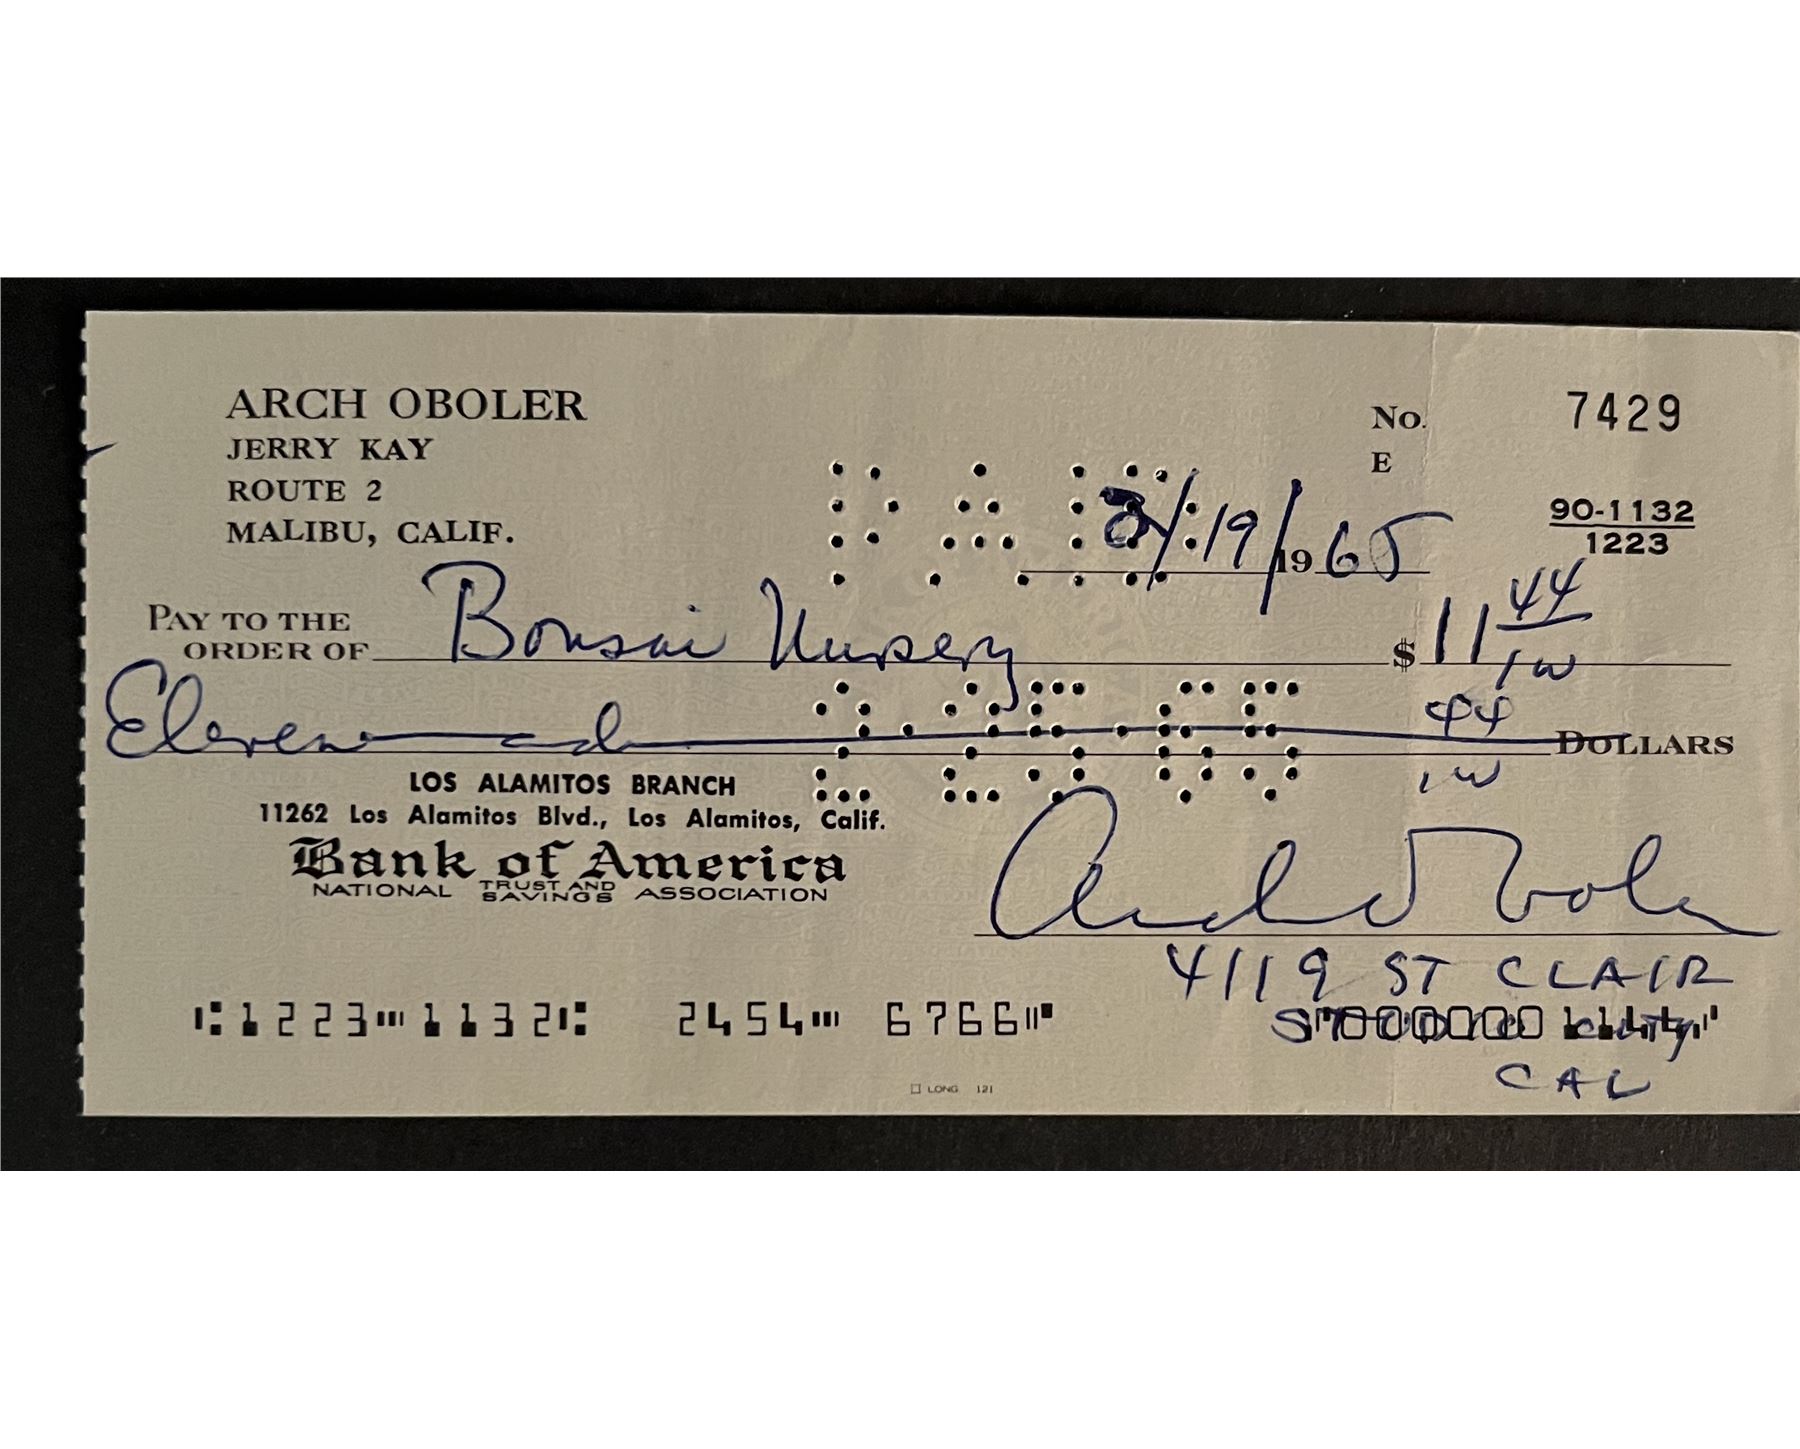 ARCH OBOLER
JERRY KAY
ROUTE 2
MALIBU, CALIF.
No. 7429
E
90-1132
1223
PAID
/19/1965
PAY TO THE
ORDER OF Bonsai Nursery $ 11 44/100
Eleven and 44/100 DOLLARS
LOS ALAMITOS BRANCH
11262 Los Alamitos Blvd., Los Alamitos, Calif.
Bank of America
NATIONAL TRUST AND SAVINGS ASSOCIATION
Arch Oboler
4119 ST CLAIR
STUDIO City
CAL
⑆1223⑉1132⑆ 2454⑉ 6766⑈ ⑇0000001144⑇
LONG 121